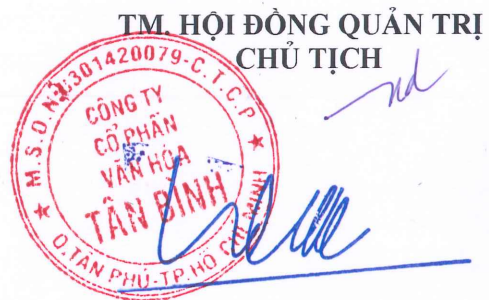 TM. HỘI ĐỒNG QUẢN TRỊ
CHỦ TỊCH
M.S.D.N:0301420079-C.T.C.P
CÔNG TY
CỔ PHẦN
VĂN HÓA
TÂN BÌNH
Q.TÂN PHÚ-TP.HỒ CHÍ MINH